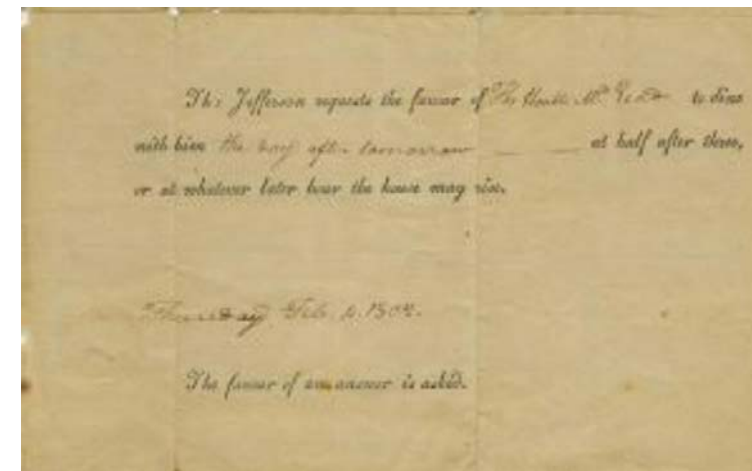 Th: Jefferson requests the favour of The Honble Mr. to dine
with him the day after tomorrow at half after three,
or at whatever later hour the house may rise.
Thursday Feb. 4. 1802.
The favour of an answer is asked.